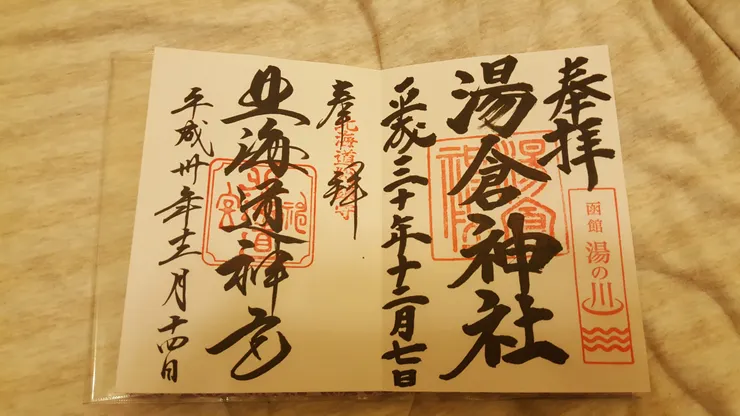 奉拝
函館
湯の川
湯倉神社
平成三十年十二月七日
奉拝
北海道神宮
平成卅年十二月十四日